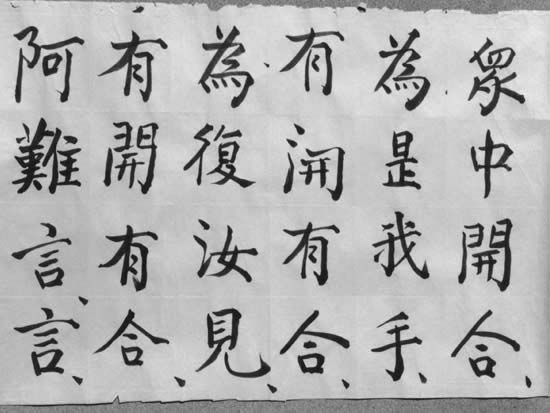 眾中開合、
為是我手、
有開有合、
為復汝見、
有開有合、
阿難言、言、